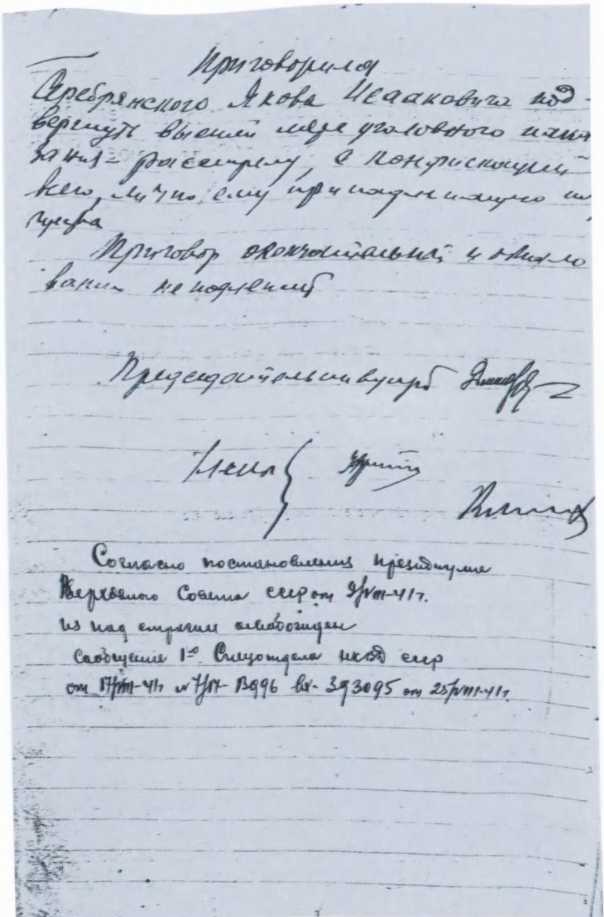 Приговорила
Серебрянского Якова Исааковича под-
вергнуть высшей мере уголовного нака
зания – расстрелу, с конфискацией
всего, лично ему принадлежащего им
ущества
Приговор окончательный и обжало
ванию не подлежит
Председательствующий
Члены
Согласно постановления президиума
Верховного Совета СССР от 9/VIII-41г.
из под стражи освобожден
сообщение 1го Спецотдела НКВД СССР
от 17/VIII-41г № 7/17-13996 вх- 393095 от 25/VIII-41г.